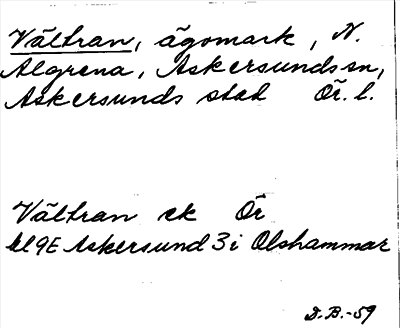 Vältran, ägomark, N.
Algrena, Askersunds sn,
Askersunds stad Ör. l.
Vältran ek Ör
bl 9E Askersund 3 i Olshammar
D.B.-59